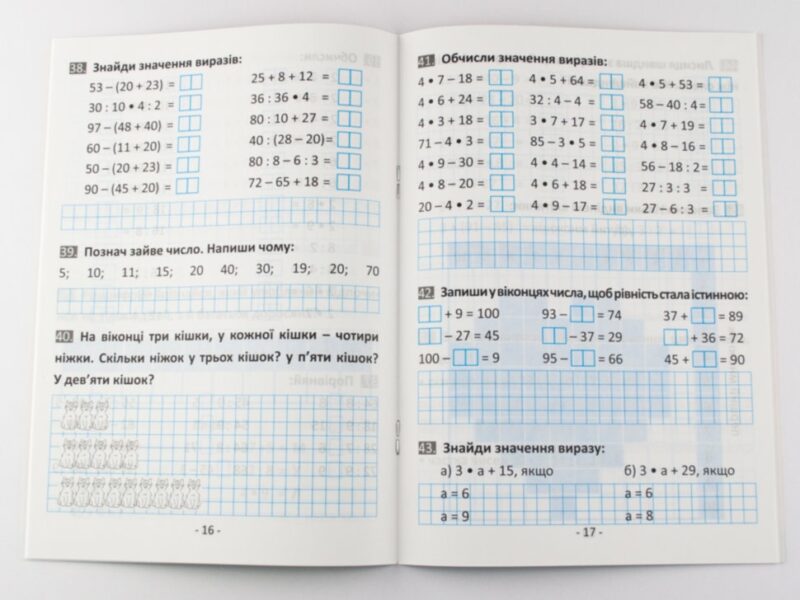 38. Знайди значення виразів:
53 – (20 + 23) = 25 + 8 + 12 =
30 : 10 • 4 : 2 = 36 : 36 • 4 =
97 – (48 + 40) = 80 : 10 + 27 =
60 – (11 + 20) = 40 : (28 – 20)=
50 – (20 + 23) = 80 : 8 – 6 : 3 =
90 – (45 + 20) = 72 – 65 + 18 =
39. Познач зайве число. Напиши чому:
5; 10; 11; 15; 20 40; 30; 19; 20; 70
40. На віконці три кішки, у кожної кішки – чотири
ніжки. Скільки ніжок у трьох кішок? у п’яти кішок?
У дев’яти кішок?
- 16 -
41. Обчисли значення виразів:
4 • 7 – 18 = 4 • 5 + 64 = 4 • 5 + 53 =
4 • 6 + 24 = 32 : 4 – 4 = 58 – 40 : 4 =
4 • 3 + 18 = 3 • 7 + 17 = 4 • 7 + 19 =
71 – 4 • 3 = 85 – 3 • 5 = 4 • 8 – 16 =
4 • 9 – 30 = 4 • 4 – 14 = 56 – 18 : 2 =
4 • 8 – 20 = 4 • 6 + 18 = 27 : 3 : 3 =
20 – 4 • 2 = 4 • 9 – 17 = 27 – 6 : 3 =
42. Запиши у віконцях числа, щоб рівність стала істинною:
+ 9 = 100 93 – = 74 37 + = 89
– 27 = 45 – 37 = 29 + 36 = 72
100 – = 9 95 – = 66 45 + = 90
43. Знайди значення виразу:
а) 3 • а + 15, якщо б) 3 • а + 29, якщо
а = 6 а = 6
а = 9 а = 8
- 17 -